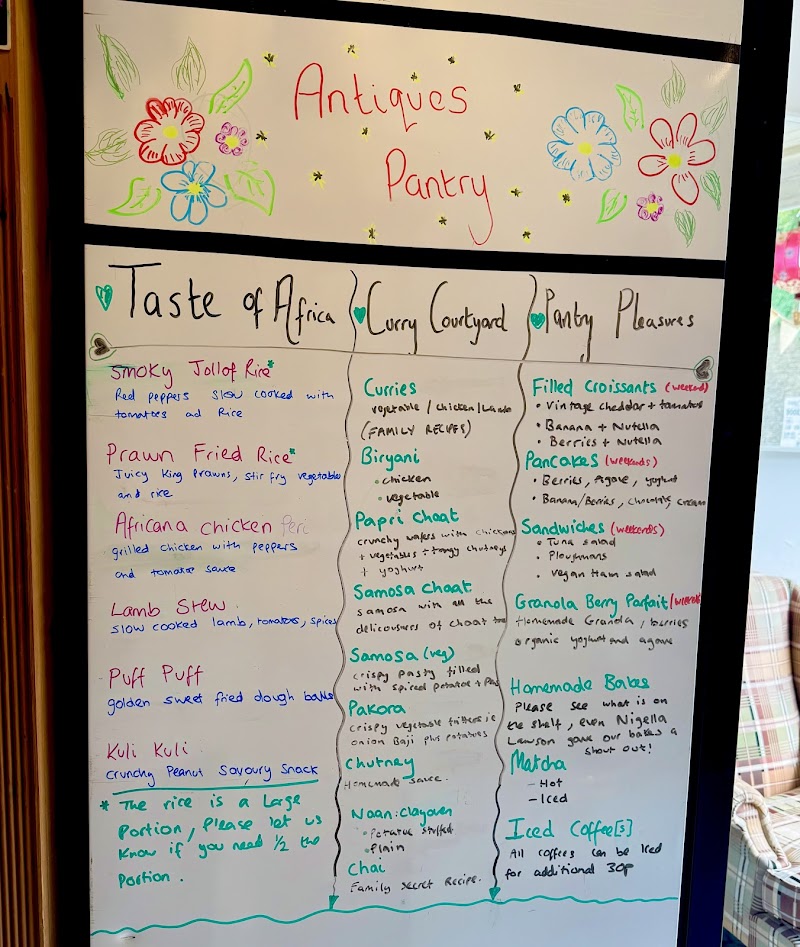 Antiques
Pantry
Taste of Africa
Smoky Jollof Rice*
Red peppers slow cooked with
tomatoes ad Rice
Prawn Fried Rice*
Juicy King Prawns, stir fry vegetables
and rice
Africana chicken Peri
grilled chicken with peppers
and tomatoe sauce
Lamb Stew
slow cooked lamb, tomatoes, spices
Puff Puff
golden sweet fried dough balls
Kuli Kuli
crunchy Peanut Savoury Snack
* The rice is a Large
Portion, Please let us
Know if you need 1/2 the
Portion.
Curry Courtyard
Curries
vegetable / chicken / Lamb
(FAMILY RECIPES)
Biryani
• chicken
• vegetable
Papri Chaat
crunchy wafers with chickpeas
+ vegetables + tangy chutneys
+ yoghurt
Samosa Chaat
samosa with all the
deliciousness of chaat
Samosa (veg)
crispy pasty filled
with spiced potatoe + Peas
Pakora
crispy vegetable fritters ie
onion Baji plus potatoes
Chutney
Homemade sauce.
Naan: clayoven
• Potatoe stuffed
• Plain
Chai
Family secret Recipe.
Pantry Pleasures
Filled Croissants (weekend)
• Vintage cheddar + tomatoes
• Banana + Nutella
• Berries + Nutella
Pancakes (weekends)
• Berries, Agave, yoghurt
• Banana/Berries, chocolate, cream
Sandwiches (weekends)
• Tuna salad
• Ploughmans
• Vegan Ham salad
Granola Berry Parfait (weekends
Homemade Granola, berries
organic yoghurt and agave
Homemade Bakes
Please see what is on
the shelf, even Nigella
Lawson gave our bakes a
shout out!
Matcha
- Hot
- Iced
Iced Coffee[s]
All coffees can be Iced
for additional 30p